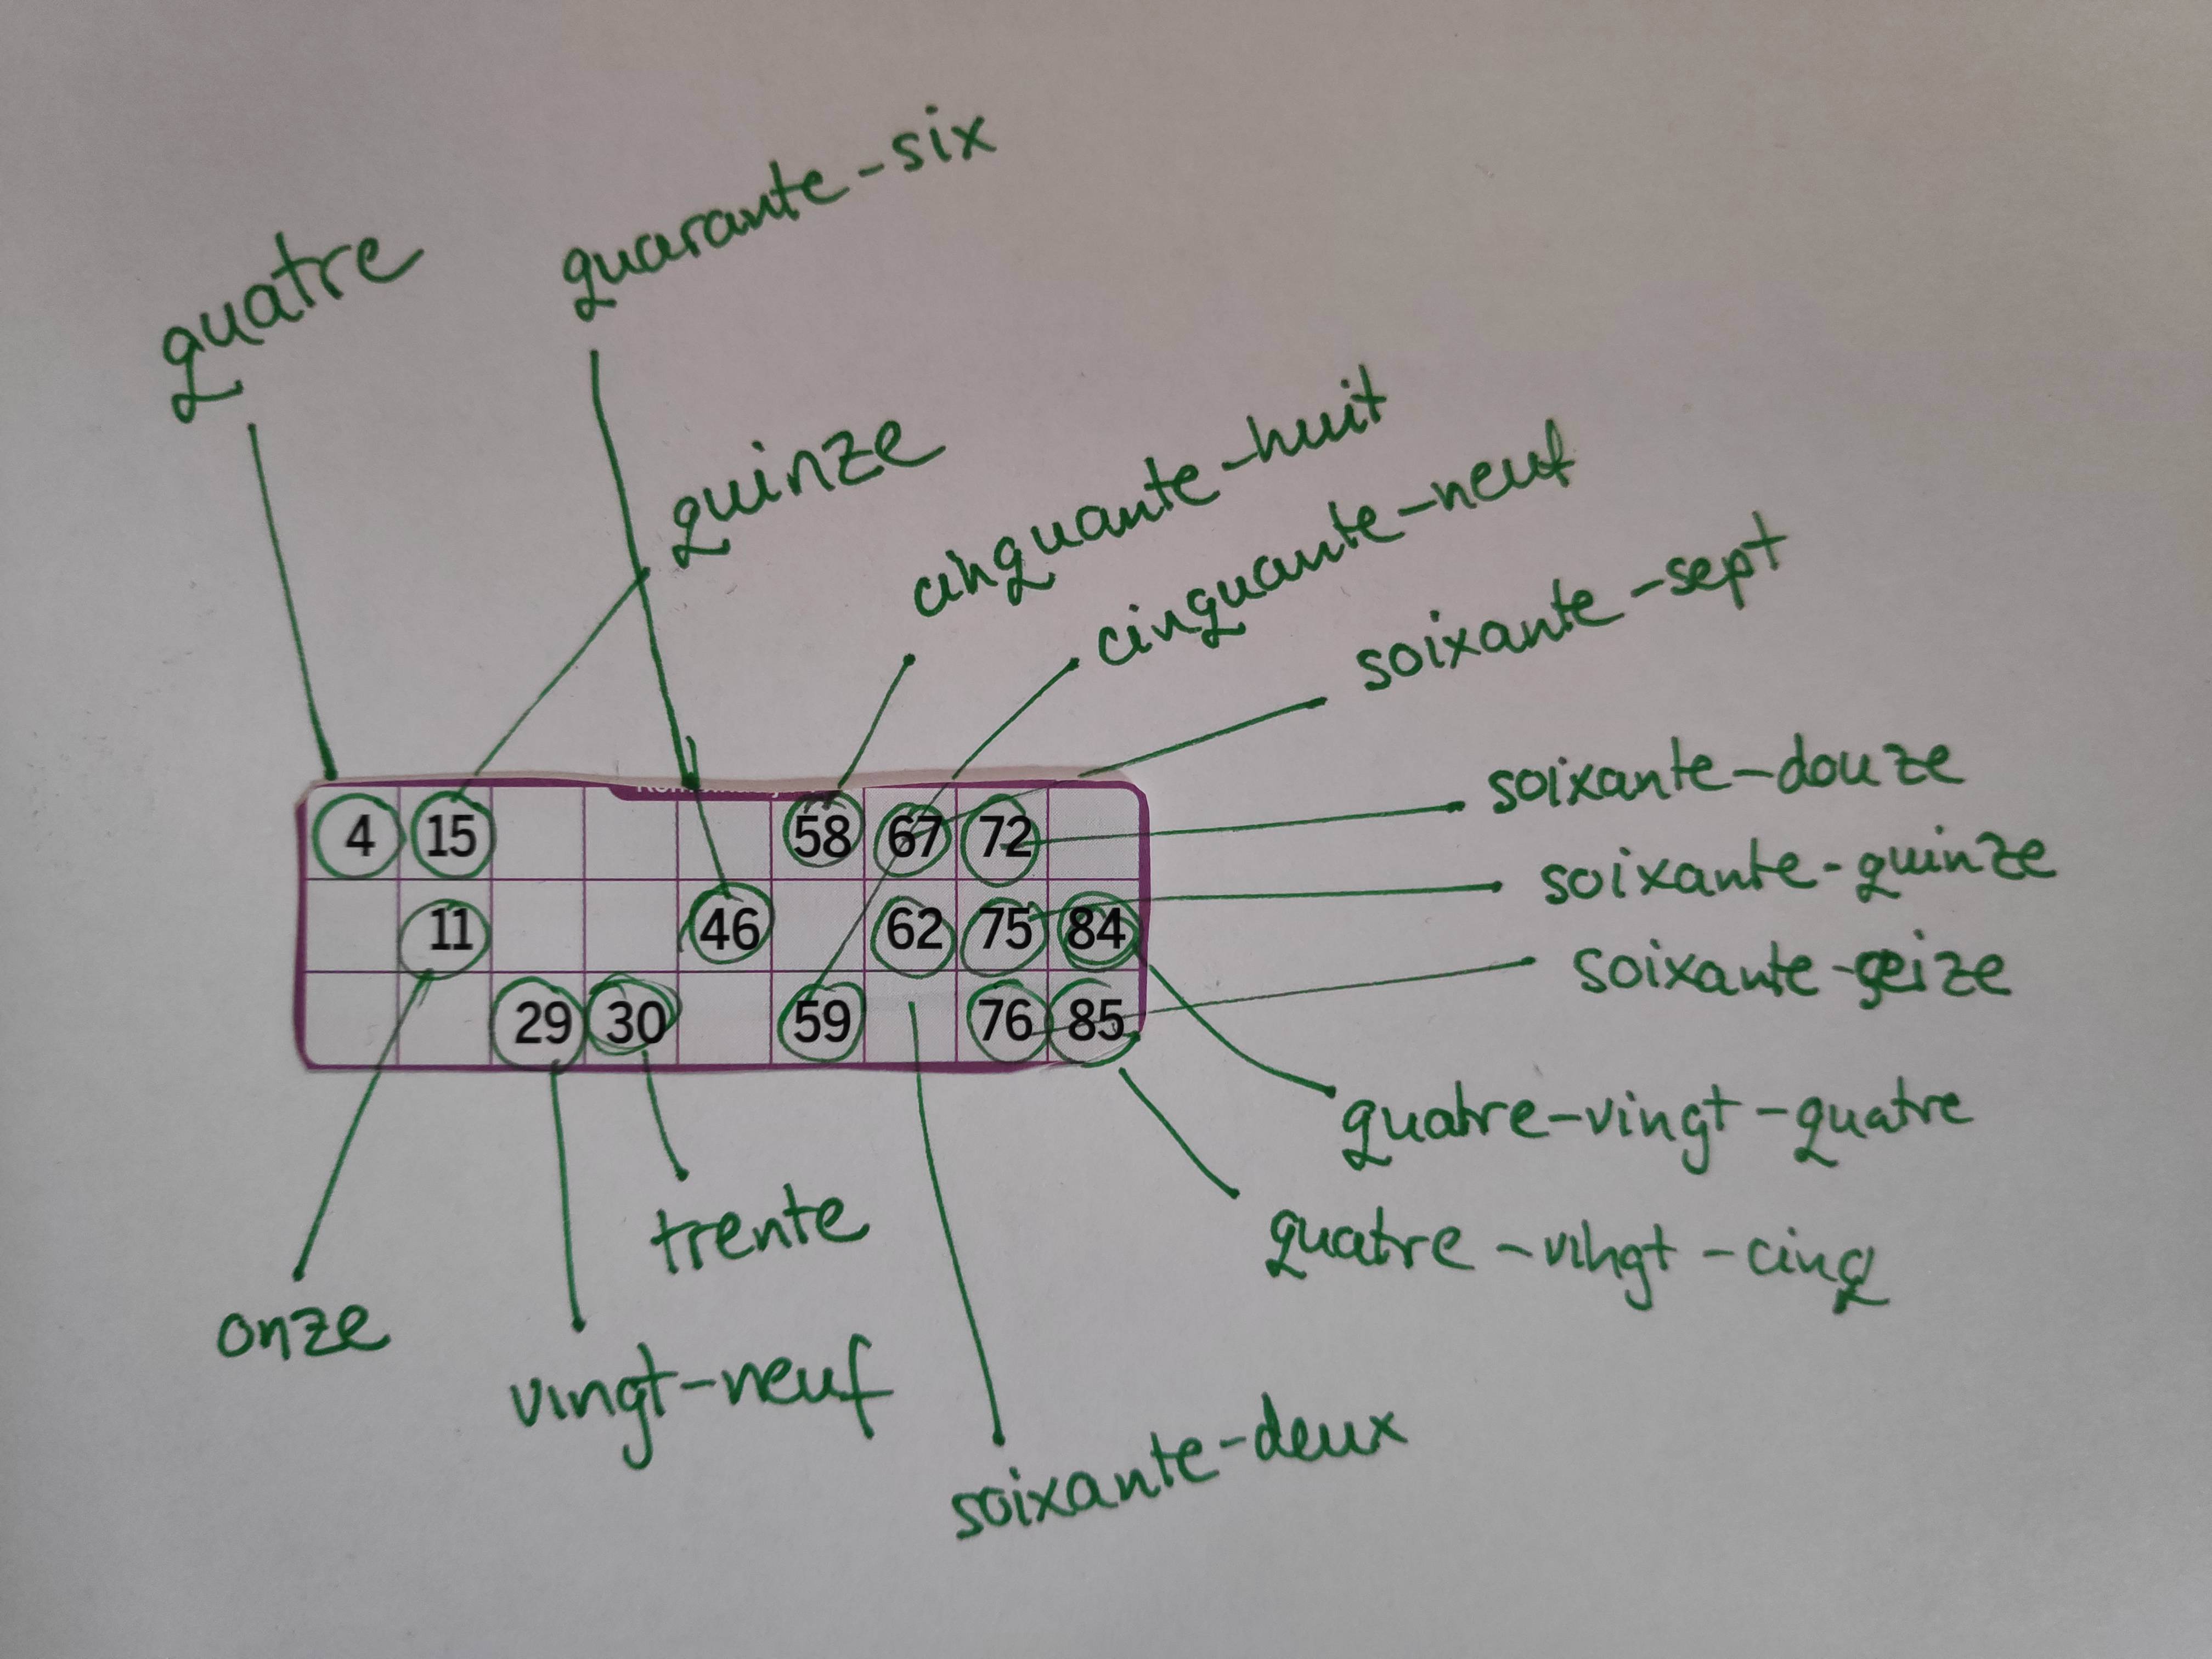 quarante-six
quatre
quinze
cinquante-huit
cinquante-neuf
soixante-sept
soixante-douze
soixante-quinze
soixante-seize
4 15 58 67 72
11 46 62 75 84
29 30 59 76 85
quatre-vingt-quatre
quatre-vingt-cinq
trente
onze
vingt-neuf
soixante-deux